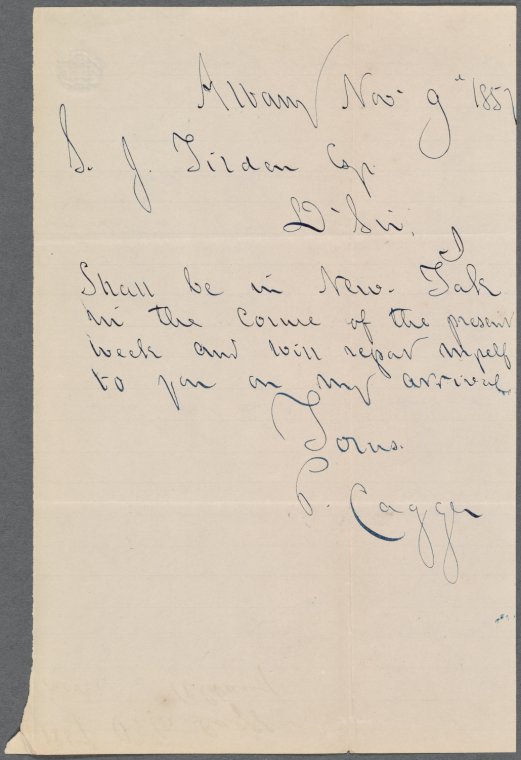 Albany Nov 9" 1857
S. J. Tilden Esq.
D' Sir, I
Shall be in New-York
in the course of the present
week and will report myself
to you on my arrival
Yours.
P. Cagger